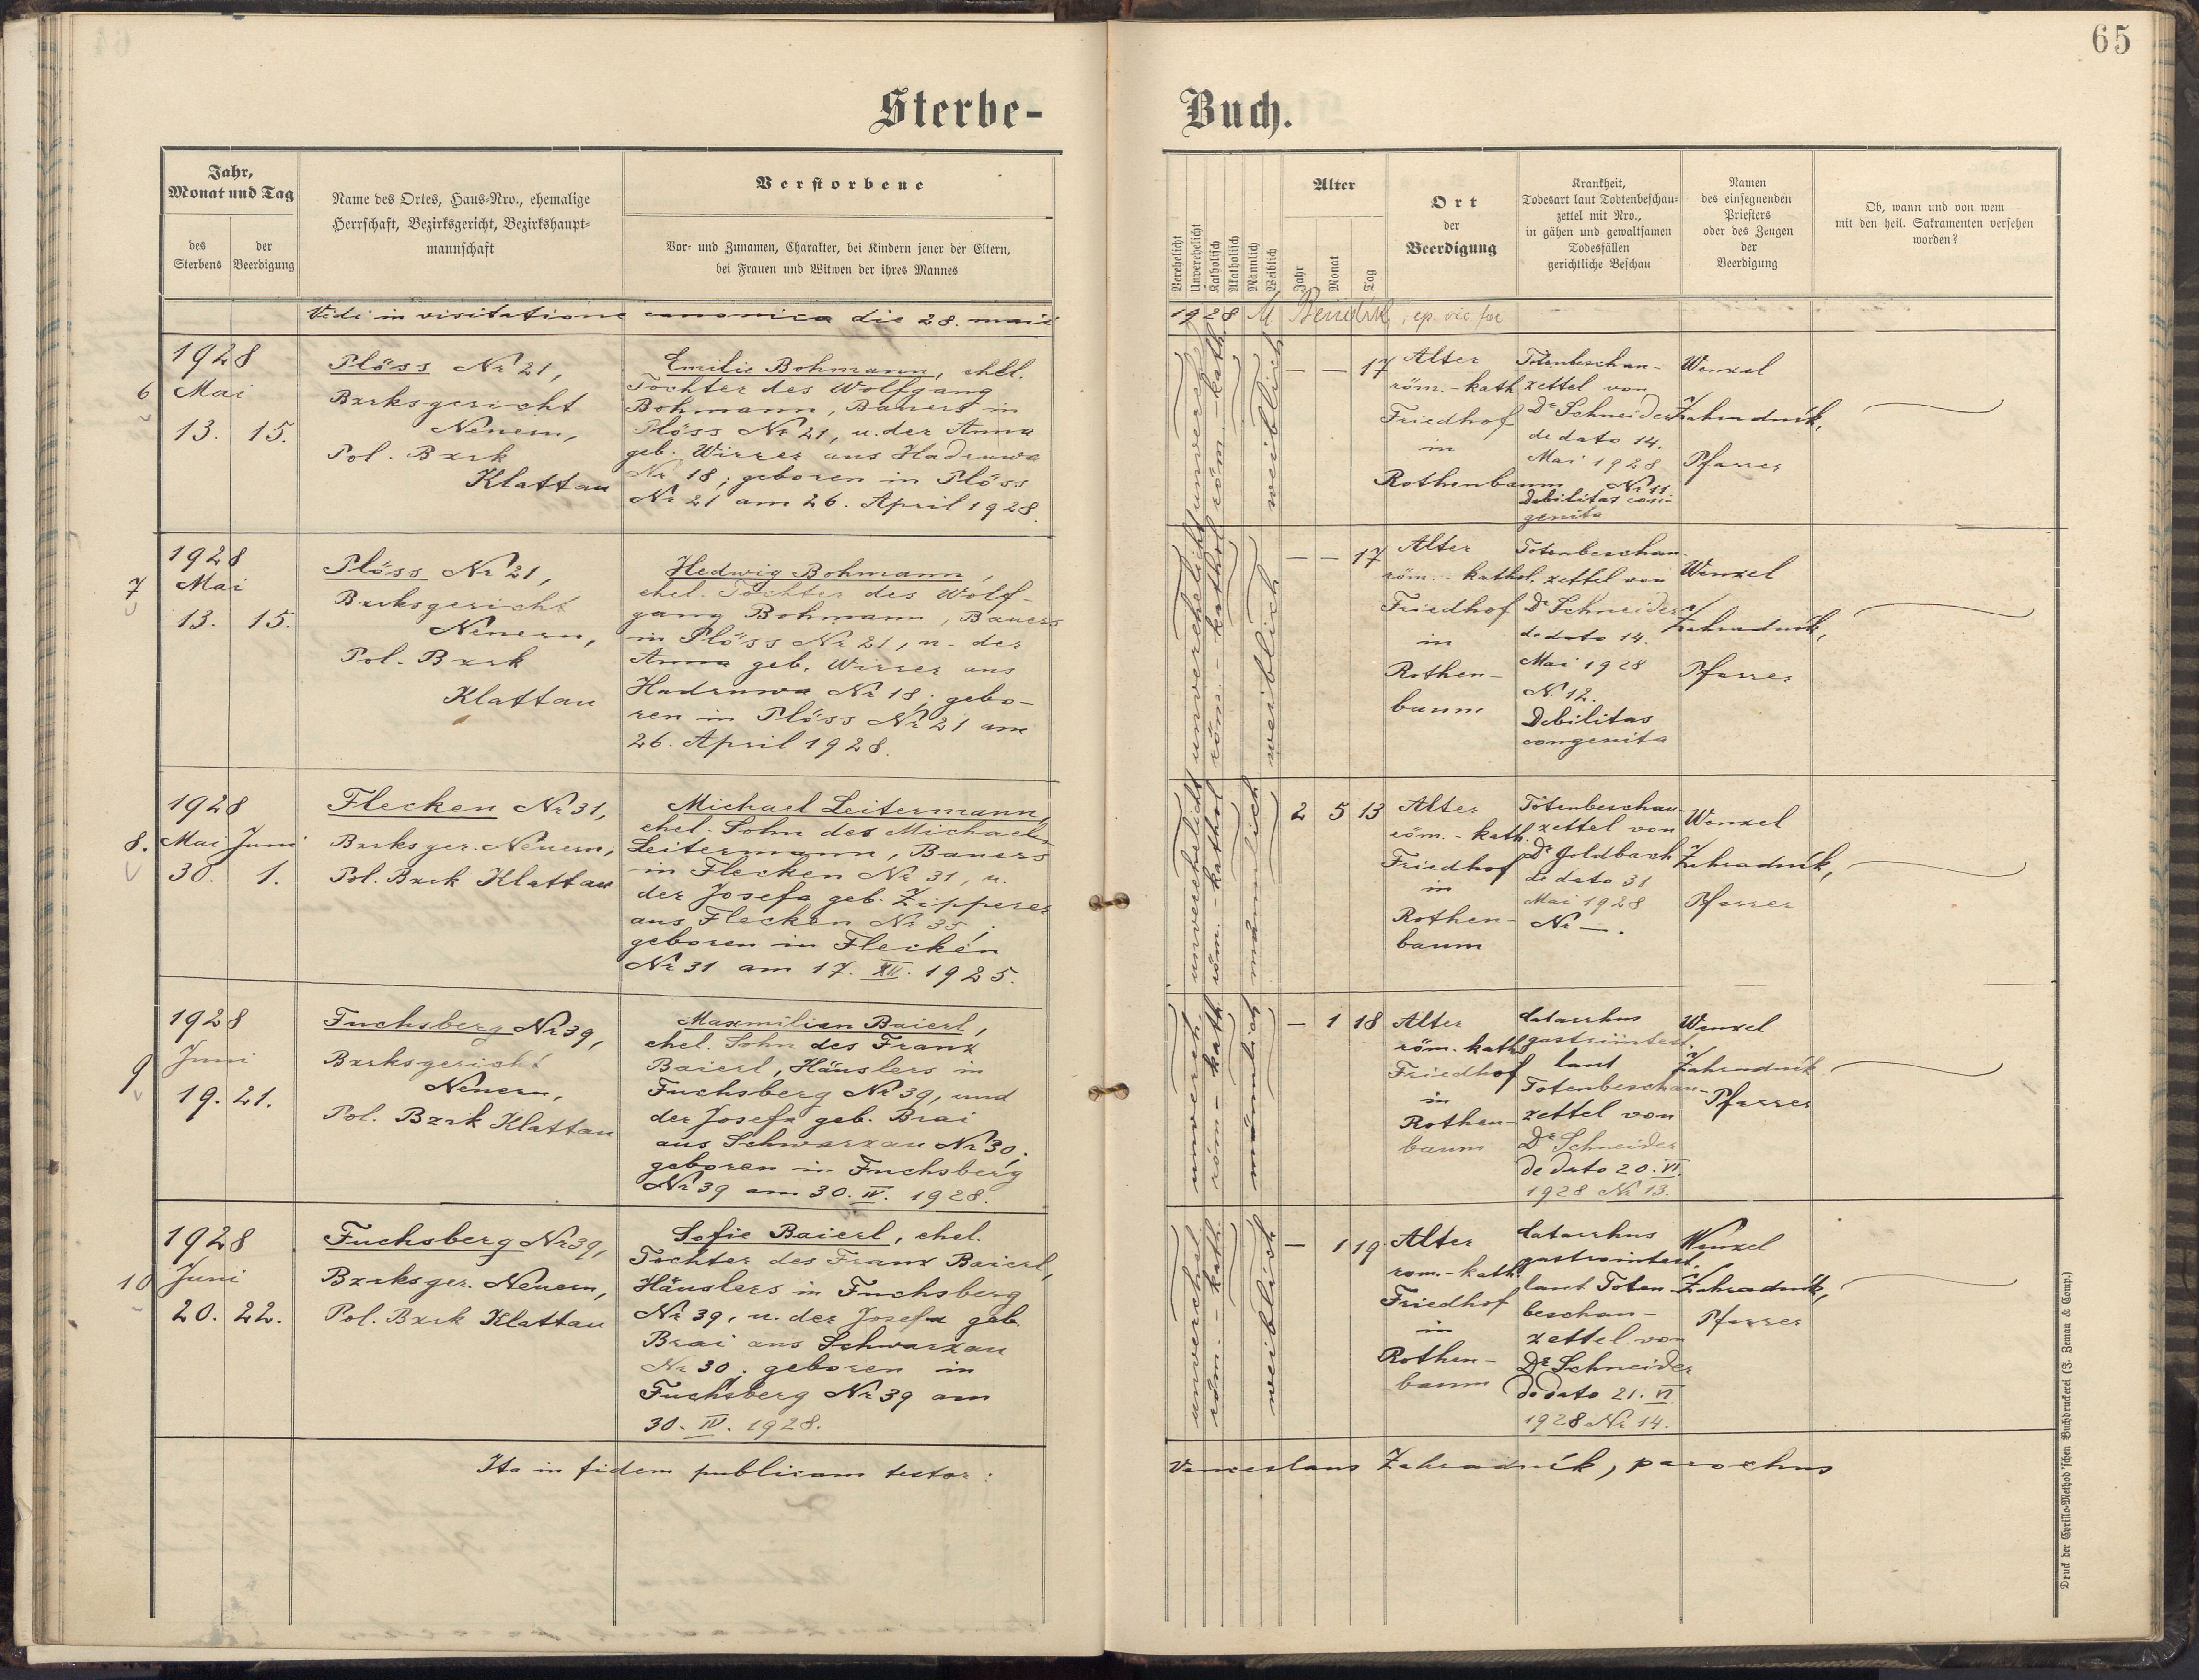 65
Sterbe-
Buch.
Jahr,
Monat und Tag
des
Sterbens
der
Beerdigung
Name des Ortes, Haus-Nro., ehemalige
Herrschaft, Bezirksgericht, Bezirkshaupt-
mannschaft
Verstorbene
Vor- und Zunamen, Charakter, bei Kindern jener der Eltern,
bei Frauen und Witwen der ihres Mannes
Verehelicht
Unverehelicht
Katholisch
Akatholisch
Männlich
Weiblich
Alter
Jahr
Monat
Tag
Ort
der
Beerdigung
Krankheit,
Todesart laut Todtenbeschau-
zettel mit Nro.,
in gähen und gewaltsamen
Todesfällen
gerichtliche Beschau
Namen
des einsegnenden
Priesters
oder des Zeugen
der
Beerdigung
Ob, wann und von wem
mit den heil. Sakramenten versehen
worden?
Vidi in visitatione canonica die 28. maii
1928 , ep. vic. for
6
1928
Mai
13. 15.
Plöss Nr 21,
Bzrksgericht
Neuern,
Pol. Bzrk
Klattau
Emilie Bohmann, ehel.
Tochter des Wolfgang
Bohmann, Bauers in
Plöss Nr 21, u. der Anna
geb. Wirrer aus Hadruwa
Nr 18; geboren in Plöss
Nr 21 am 26. April 1928.
unvereh
röm.-kath
weiblich
— — 17
Alter
röm.-kath.
Friedhof
in
Rothenbaum
Totenbeschau-
zettel von
Dr Schneider
de dato 14.
Mai 1928
Nr 11
Debilitas con-
genita
Wenzel
Zahradník,
Pfarrer
7
1928
Mai
13. 15.
Plöss Nr 21,
Bzrksgericht
Neuern,
Pol. Bzrk
Klattau
Hedwig Bohmann,
ehel. Tochter des Wolf-
gang Bohmann, Bauers
in Plöss Nr 21, u. der
Anna geb. Wirrer aus
Hadruwa Nr 18; gebo-
ren in Plöss Nr 21 am
26. April 1928.
unverehelicht
röm.-kathol
weiblich
— — 17
Alter
röm.-kathol.
Friedhof
in
Rothen-
baum
Totenbeschau-
zettel von
Dr Schneider
de dato 14.
Mai 1928
N. 12.
Debilitas
congenita
Wenzel
Zahradník,
Pfarrer
8.
1928
Mai Juni
30. 1.
Flecken Nr 31,
Bzrksger. Neuern,
Pol. Bzrk Klattau
Michael Leitermann,
ehel. Sohn des Michael
Leitermann, Bauers
in Flecken Nr 31, u.
der Josefa geb. Zipperer
aus Flecken Nr 35;
geboren in Flecken
Nr 31 am 17. XII. 1925.
unverehelicht
röm.-kathol
männlich
2 5 13
Alter
röm.-kath.
Friedhof
in
Rothen-
baum
Totenbeschau-
zettel von
Dr Goldbach
de dato 31
Mai 1928
Nr —.
Wenzel
Zahradník,
Pfarrer
9
1928
Juni
19. 21.
Fuchsberg Nr 39,
Bzrksgericht
Neuern,
Pol. Bzrk Klattau
Maxmilian Baierl,
ehel. Sohn des Franz
Baierl, Häuslers in
Fuchsberg Nr 39, und
der Josefa geb. Brai
aus Schwarzau Nr 30;
geboren in Fuchsberg
Nr 39 am 30. IV. 1928.
unvereh.
röm.-kath
männlich
— 1 18
Alter
röm. kath
Friedhof
in
Rothen-
baum
Catarrhus
gastrointest.
laut
Totenbeschau-
zettel von
Dr Schneider
de dato 20. VI.
1928 Nr 13.
Wenzel
Zahradník
Pfarrer
10
1928
Juni
20. 22.
Fuchsberg Nr 39,
Bzrksger. Neuern,
Pol. Bzrk Klattau
Sofie Baierl, ehel.
Tochter des Franz Baierl,
Häuslers in Fuchsberg
Nr 39, u. der Josefa geb.
Brai aus Schwarzau
Nr 30; geboren in
Fuchsberg Nr 39 am
30. IV. 1928.
unverehel
röm.-kath.
weiblich
— 1 19
Alter
rom.-kath.
Friedhof
in
Rothen-
baum
Catarrhus
gastrointest.
laut Toten-
beschau-
zettel von
Dr Schneider
de dato 21. VI
1928 Nr 14.
Wenzel
Zahradník,
Pfarrer
Ita in fidem publicam testor: Venceslaus Zahradník, parochus
Druck der Cyrillo-Method'schen Buchdruckerei (J. Zeman & Comp.)